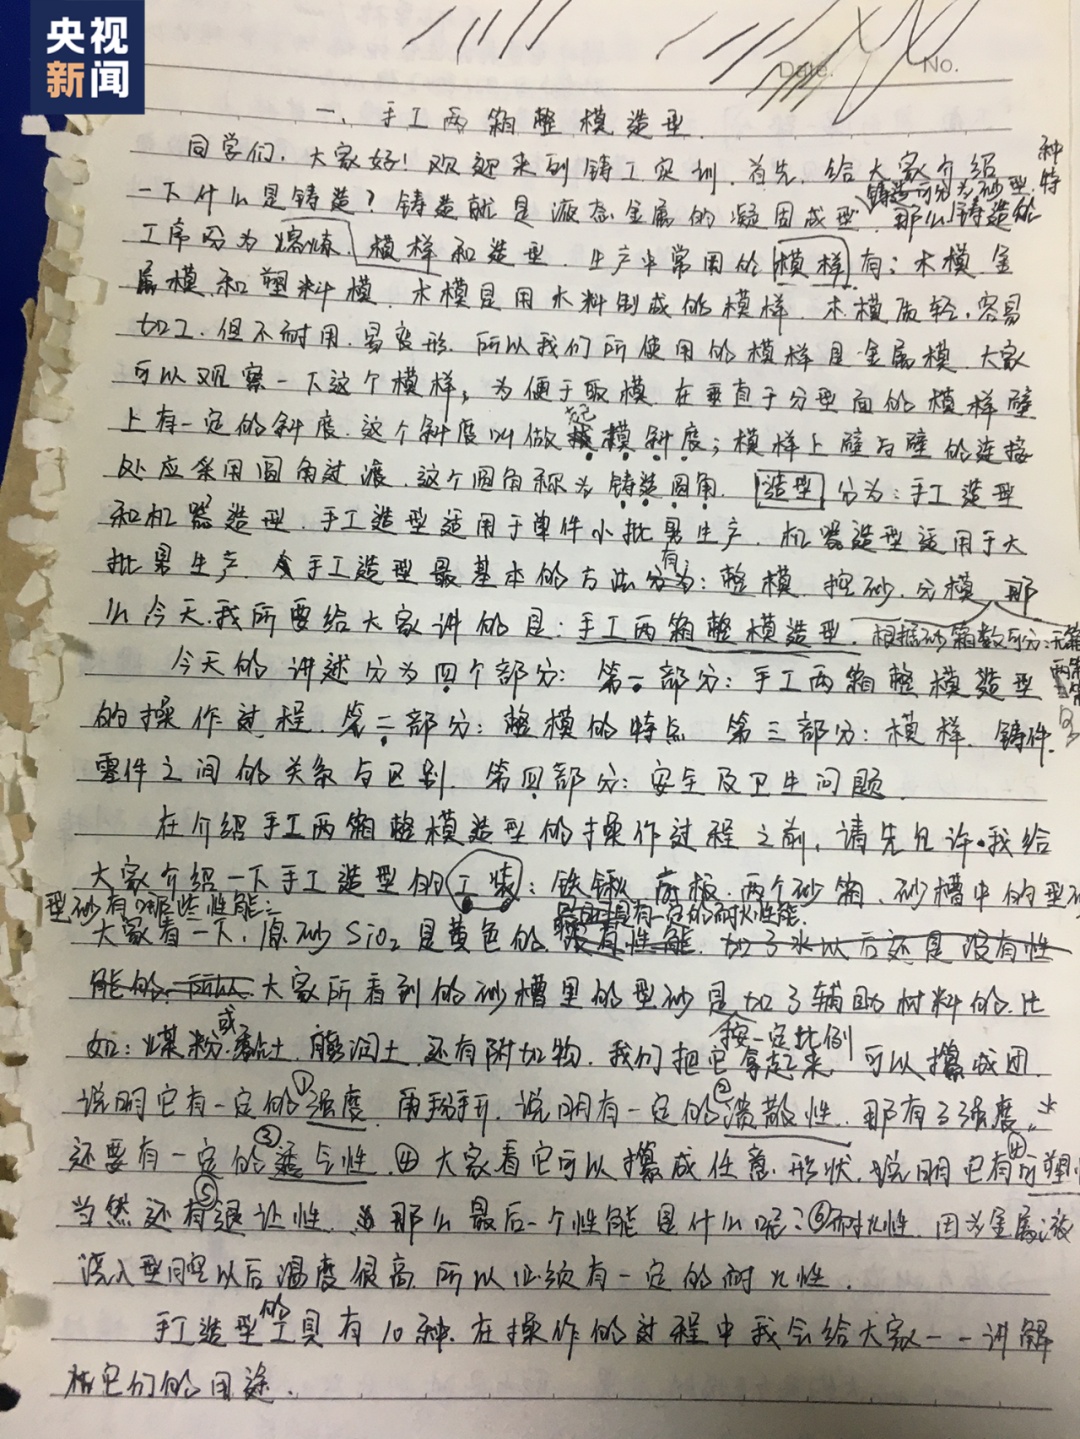 央视
新闻
Date.
No.
一、手工两箱整模造型
同学们,大家好!欢迎来到铸工实训,首先,给大家介绍
种
特
铸造可分为砂型
一下什么是铸造?铸造就是液态金属的凝固成型,那么铸造的
工序分为熔炼,模样和造型,生产中常用的模样有:木模,金
属模,和塑料模,木模是用木料制成的模样,木模质轻,容易
加工,但不耐用,易变形,所以我们所使用的模样是金属模,大家
可以观察一下这个模样,为便于取模,在垂直于分型面的模样壁
起
上有一定的斜度,这个斜度叫做模斜度;模样上壁与壁的连接
处应采用圆角过渡,这个圆角称为铸造圆角,造型分为:手工造型
和机器造型,手工造型适用于单件小批量生产,机器造型适用于大
有
批量生产,手工造型最基本的方法分为:整模,挖砂,分模,那
么今天,我所要给大家讲的是:手工两箱整模造型,根据砂箱数可分:无箱
两箱
今天的讲述分为四个部分:第一部分:手工两箱整模造型
的操作过程,第二部分:整模的特点 第三部分:模样,铸件,
零件之间的关系与区别,第四部分:安全及卫生问题.
在介绍手工两箱整模造型的操作过程之前,请先允许我给
大家介绍一下手工造型的工装:铁锹,底板,两个砂箱,砂槽中的型砂
型砂有哪些性能:
具有一定的耐火性能.
大家看一下,原砂SiO₂是黄色的 没有性能,加了水以后还是没有性
能的,所以 大家所看到的砂槽里的型砂是加了辅助材料的,比
或
按一定比例
如:煤粉,黏土,膨润土,还有附加物,我们把它拿起来,可以攥成团,
说明它有一定的①强度,用手掰开,说明有一定的②溃散性,那有了强度,
还要有一定的③透气性,④大家看它可以攥成任意形状,说明它有④可塑性
当然还有⑤退让性,那么最后一个性能是什么呢?⑥耐火性,因为金属液
浇入型腔以后温度很高,所以必须有一定的耐火性.
的
手工造型工具有10种,在操作的过程中我会给大家一一讲解
它们的用途.